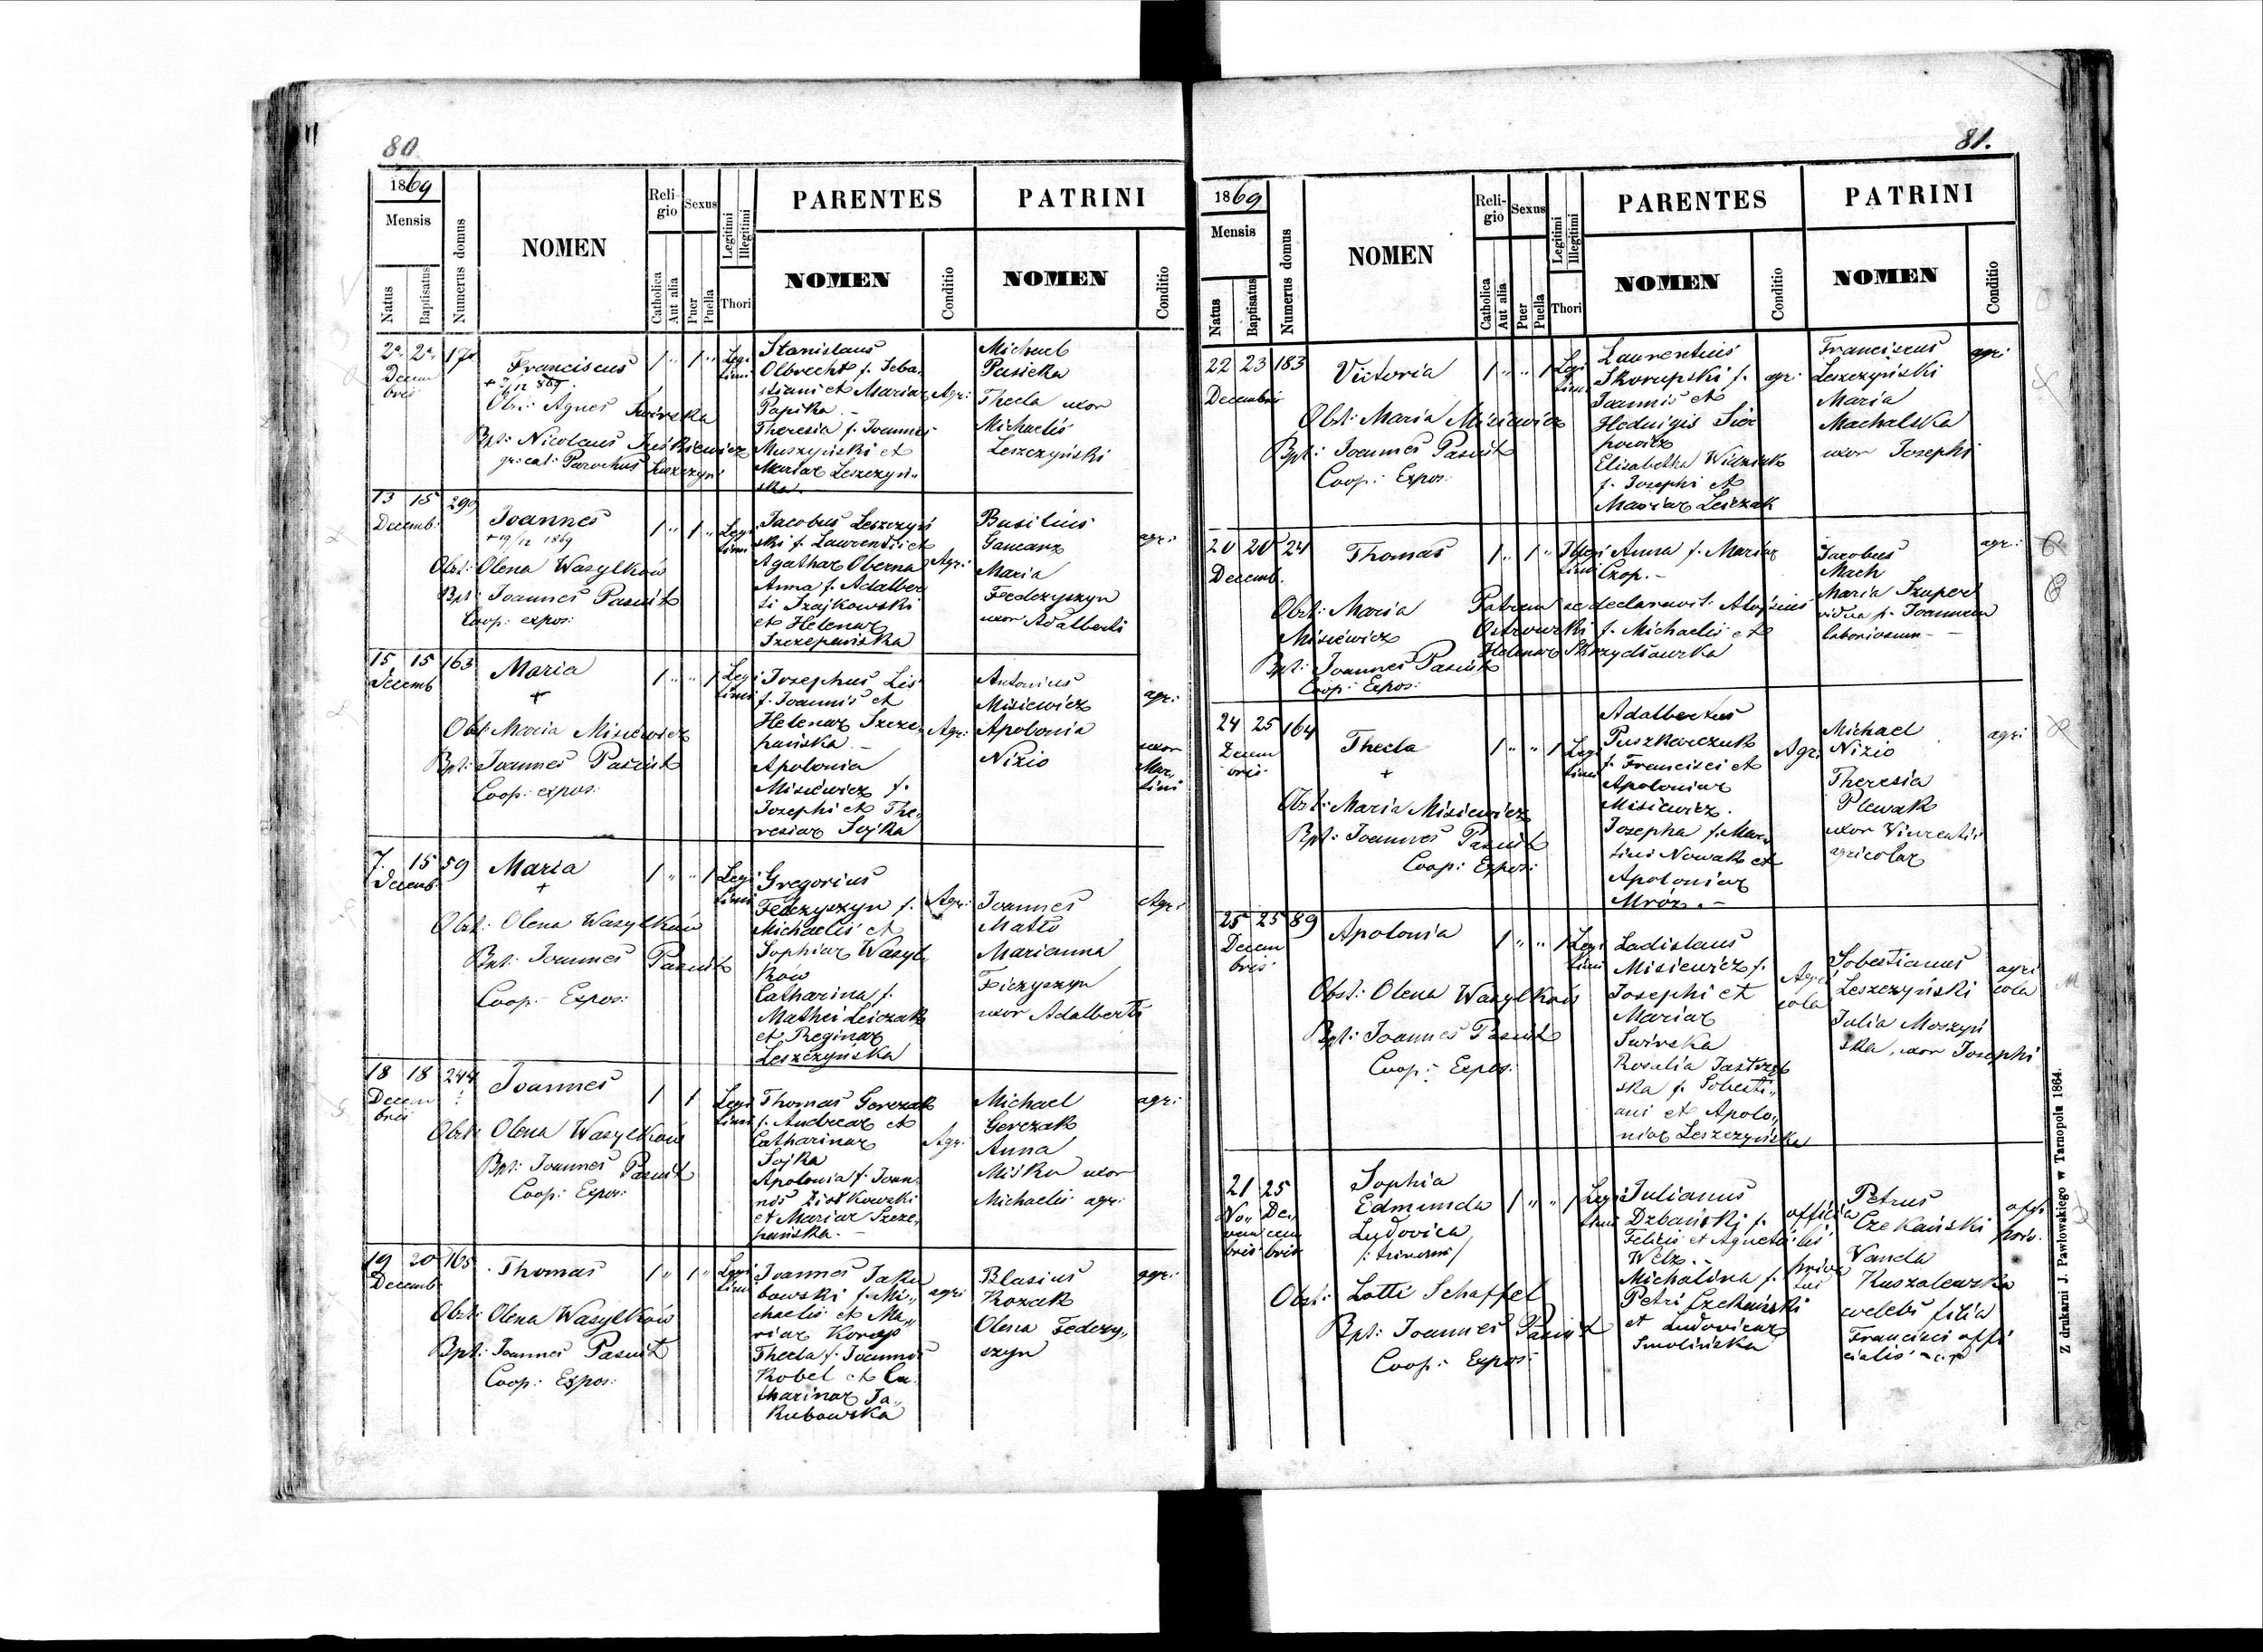 80
1869
Mensis
Natus
Baptisatus
Numerus domus
NOMEN
Reli-
gio
Catholica
Aut alia
Sexus
Puer
Puella
Legitimi
Illegitimi
Thori
PARENTES
NOMEN
Conditio
PATRINI
NOMEN
Conditio
Decem
bris
Franciscus
Obst: Agnes Swirska
Bpt: Nicolaus
gr: cat: Parochus
1 " 1 "
Legi
timi
Stanislaus
Olbrecht f. Seba
stiani et Mariae
Papika.-
Theresia f. Joannis
Muszyński et
Mariae Leszczyń-
ska.-
Agr:
Michael
Pasieka
Thecla uxor
Michaelis
Leszczyński
13 15 299
Decemb:
Joannes
+ 19/12 1869
Obst: Olena Wasylków
Bpt: Joannes Pasiut
Coop: expos:
1 " 1 "
Legi
timi
Jacobus Leszczyń
ski f. Laurentii et
Agathae Oberna
Anna f. Adalber
ti Szajkowski
et Helenae
Szczepańska
Agr:
Basilius
Gancarz
Maria
Fedczyszyn
uxor Adalberti
agr:
15 15 163
Decemb
Maria
+
Obst: Maria Misiewicz
Bpt: Joannes Pasiut
Coop: expos:
1 " " 1
Legi
timi
Josephus Lis
f. Joannis et
Helenae Szcze-
pańska.-
Apolonia
Misiewicz f.
Josephi et The,
resiae Sojka
Agr:
Antonius
Misiewicz
Apolonia
Nizio
agr:
uxor
Mar,
tini
7. 15 59
Decemb
Maria
+
Obst: Olena Wasylków
Bpt: Joannes Pasiut
Coop:- Expos:
1 " " 1
Legi
timi
Gregorius
Fedczyszyn f.
Michaelis et
Sophiae Wasyl
ków
Catharina f.
Mathei Leiczak
et Reginae
Leszczyńska
Agr:
Joannes
Matło
Marianna
Ficzyszyn
uxor Adalberti
Agr:
18 18 244
Decem
bris
Joannes
Obst: Olena Wasylków
Bpt: Joannes Pasiut
Coop: Expos:
1 1
Legi
timi
Thomas Gerczak
f. Andreae et
Catharinae
Sojka
Apolonia f. Joan
nis Ziołkowski
et Mariae Szcze,
pańska.-
Agr:
Michael
Gerczak
Anna
Miśko uxor
Michaelis agr:
agr:
19 20 165
Decemb
Thomas
Obst: Olena Wasylków
Bpt: Joannes Pasiut
Coop: Expos:
1 " 1 "
Legi
timi
Joannes Jaku
bowski f. Mi,,
chaelis et Ma,,
riae
Thecla f. Joannis
Kobel et Ca
tharinae Ja,,
kubowska
agr:
Blasius
Kozak
Olena Fedczy,,
szyn
agr:
81.
1869
Mensis
Natus
Baptisatus
Numerus domus
NOMEN
Reli-
gio
Catholica
Aut alia
Sexus
Puer
Puella
Legitimi
Illegitimi
Thori
PARENTES
NOMEN
Conditio
PATRINI
NOMEN
Conditio
22 23 183
Decembris
Victoria
Obst: Maria Misiewicz
Bpt: Joannes Pasiut
Coop: Expos:
1 " " 1
Legi
timi
Laurentius
Skorupski f.
Joannis et
Hedvigis
Elisabetha
f. Josephi et
Mariae Leiczak
agr:
Franciscus
Leszczyński
Maria
Machalska
uxor Josephi
agr:
20 20 24
Decemb.
Thomas
Obst: Maria
Misiewicz
Bpt: Joannes Pasiut
Coop: Expos:
1 " 1 "
Illegi
timi
Anna f. Mariae
Czop.-
Patrem se declaravit Aloysius
Ostrowski f. Michaelis et
Helenae Skrzydłowska
Jacobus
Mach
Maria Szuper
vidua p. Joannem
laboriosum
agr:
24 25 164
Decem
bris
Thecla
+
Obst: Maria Misiewicz
Bpt: Joannes Pasiut
Coop: Expos:
1 " " 1
Legi
timi
Adalbertus
Puszkarczuk
f. Francisci et
Apoloniae
Misiewicz.
Josepha f. Mar
tini Nowak et
Apoloniae
Mróz.-
Agr:
Michael
Nizio
Theresia
Plewak
uxor Vincentii
agricolae
agri
25 25 89
Decem
bris
Apolonia
Obst: Olena Wasylków
Bpt: Joannes Pasiut
Coop: Expos:
1 " " 1
Legi
timi
Ladislaus
Misiewicz f.
Josephi et
Mariae
Swirska
Rosalia Jastrzęb
ska f. Sobesti,,
ani et Apolo,,
niae Leszczyńska
Agri
cola
Sobestianus
Leszczyński
Julia Moszyń
ska, uxor Josephi
agri
cola
21 25
No,, De,,
vem cem
bris bris
Sophia
Edmunda
Ludovica
/: trinomi/
Obst: Lotti Schaffel
Bpt: Joannes Pasiut
Coop: Expos:
1 " " 1
Legi
timi
Julianus
Dzbański f.
Felicis et Agnetis
Welz.-
Michalina f.
Petri Czekański
et Ludovicae
Smolińska
officia
lis
priva
tus
Petrus
Czekański
Vanda
Kuszalewska
celebs filia
Francisci offi
cialis
offi
priv.
Z drukarni J. Pawłowskiego w Tarnopolu 1864.